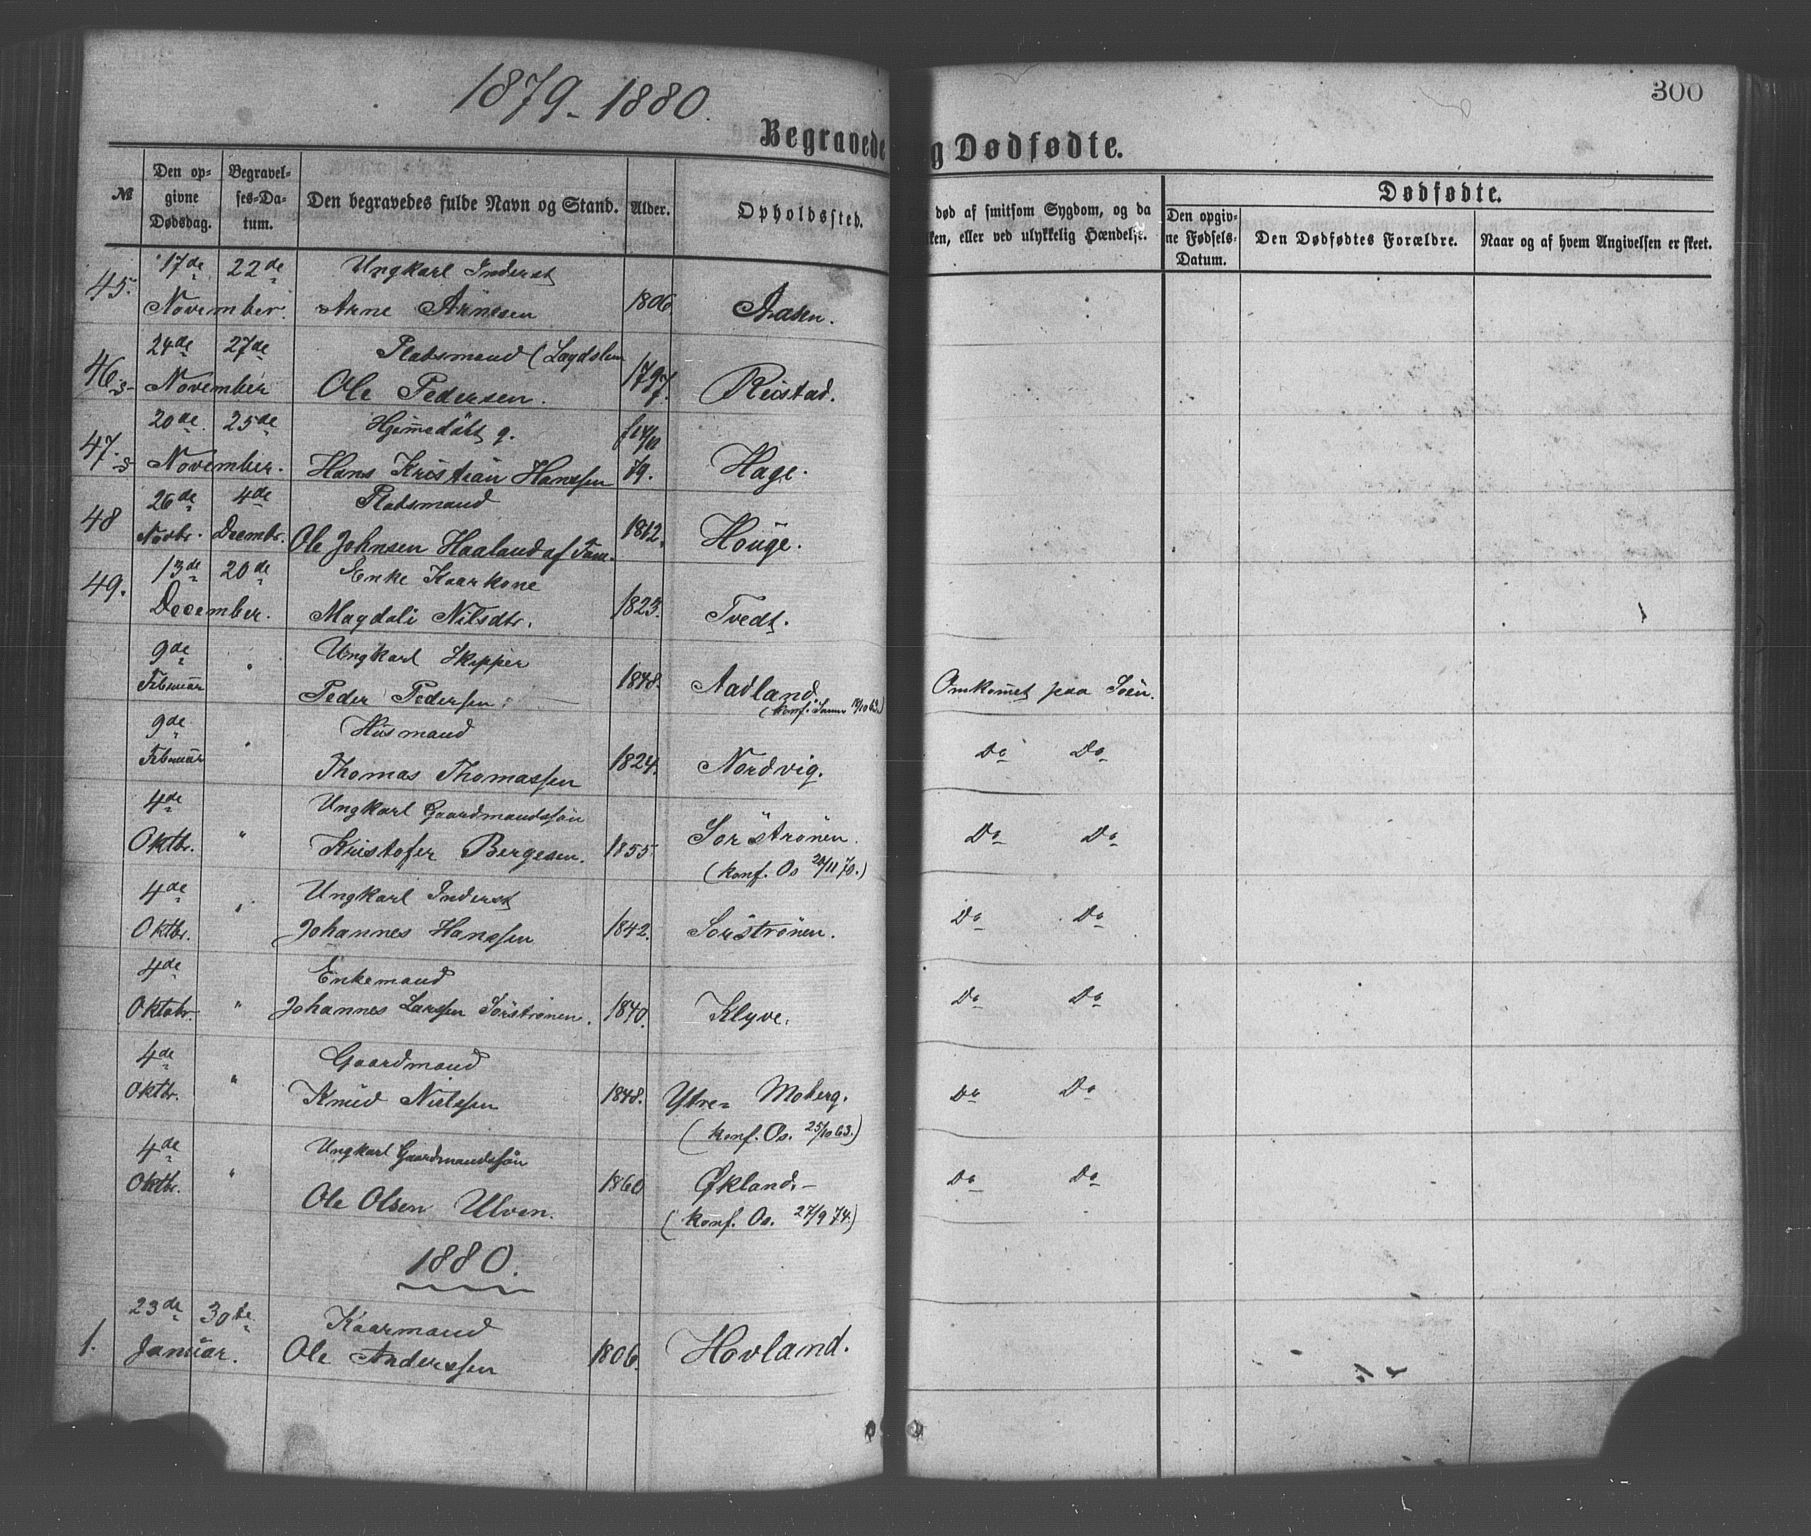 1879-1880.
300
Begravede
g Dødfødte.
№
Den opgivne Dødsdag.
Begravelses-Datum.
Den begravedes fulde Navn og Stand.
Alder.
Opholdssted.
død af smitsom Sygdom, og da
ken, eller ved ulykkelig Hændelse.
Dødfødte.
Den opgivne Fødsels-Datum.
Den Dødfødtes Forældre.
Naar og af hvem Angivelsen er skeet.
17de 22de Ungkarl Inderst
45. November. Arne Arnesen 1806. Aasen.
24de 27de Pladsmand (Lægdslem
46 November Ole Pedersen. 1797. Reistad.
20de 25de Hjemedøbt g. f 14/11
47. November. Hans Kristian Hanssen 79. Hage.
26de 4de Pladsmand
48 Novbr. Decmbr. Ole Johnsen Haaland af 1812. Houge.
13de 20de Enke Kaarkone
49. December. Magdali Nilsdtr. 1823. Tvedt.
9de " Ungkarl Skipper
Februar Peder Pedersen. 1848. Aadland. Omkomet paa Søen.
(konf.
9de " Husmand
Februar Thomas Thomassen 1824. Nordvig. Do Do
4de Ungkarl Gaardmandssøn
Oktbr. " Kristofer Bergesen. 1855. Sørstrønen. Do Do
(konf. Os 20/11 70.)
4de " Ungkarl Inderst
Oktbr. Johannes Hanssen 1842. Sørstrønen. Do Do
4de Enkemand
Oktobr. " Johannes Larssen Sørstrønen. 1840. Klyve. Do Do
4de Gaardmand
Oktbr. " Knud Nielssen 1848. Ytre- Moberg. Do Do
(konf. Os. 25/10 63.)
4de Ungkarl Gaardmandssøn
Oktbr. " Ole Olsen Ulven. 1860 Økland.- Do Do
(konf. Os. 27/9 74.)
1880.
23de 30te Kaarmand
1. Januar. Ole Anderssen 1806. Hovland.